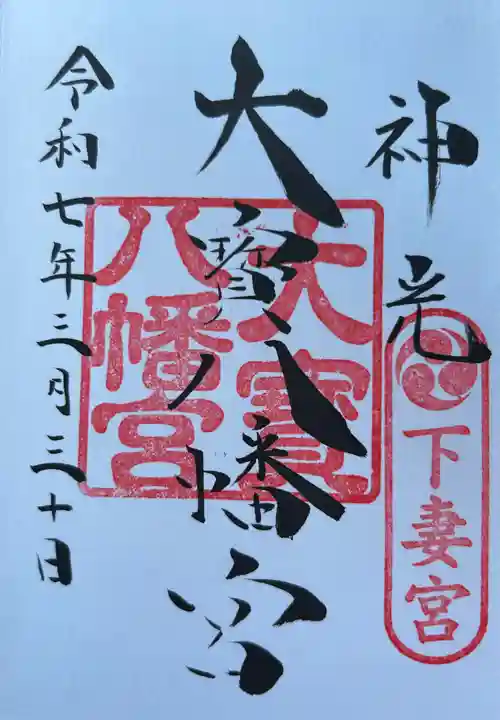 神光
下妻宮
大寳八幡宮
大寳
八幡宮
令和七年三月三十日